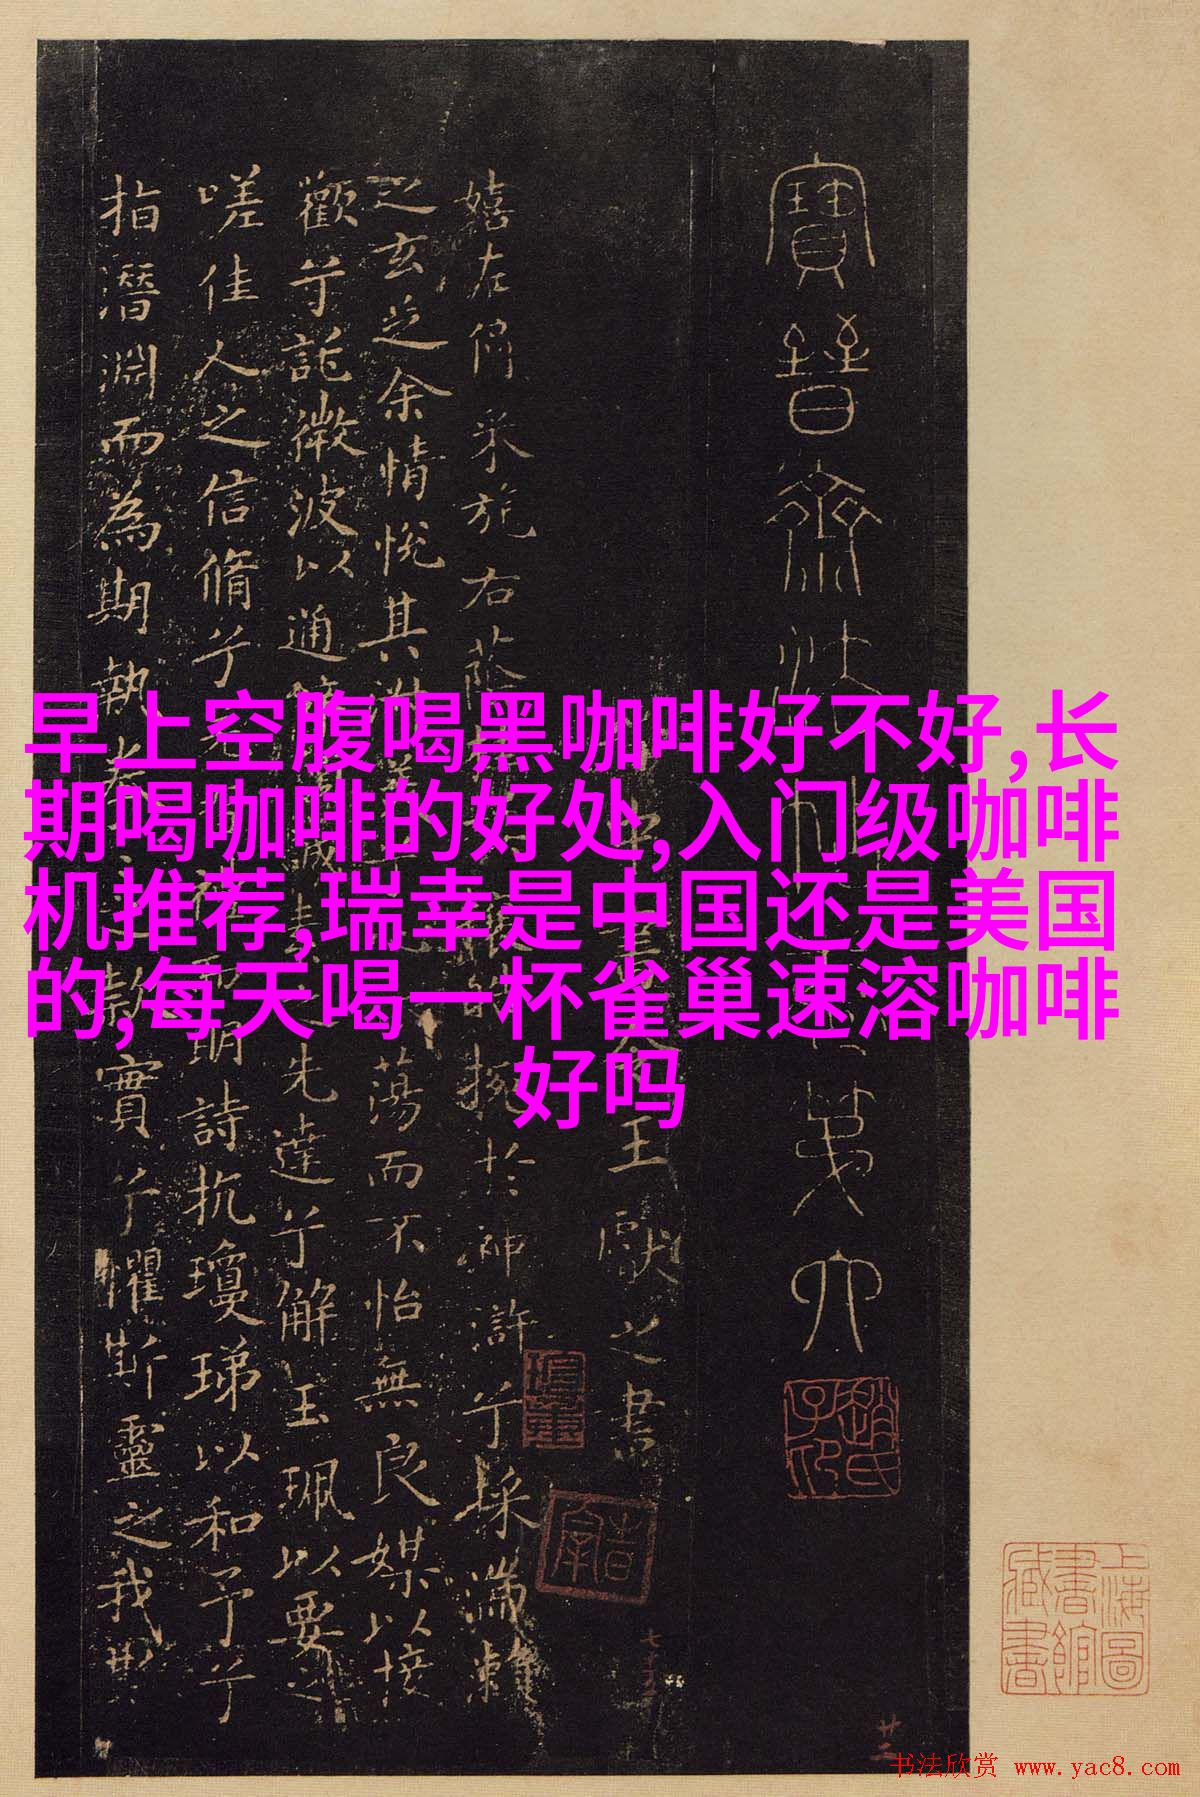 早上空腹喝黑咖啡好不好,长
期喝咖啡的好处,入门级咖啡
机推荐,瑞幸是中国还是美国
的,每天喝一杯雀巢速溶咖啡
好吗
寶晉齋法
王獻之書
嬉左倚采旄右蔭
於神滸兮採湍瀨
之玄芝余情悅其淑美
蕩而不怡無良媒以接
歡兮託微波以通
先達兮解玉珮以要
嗟佳人之信脩兮
明詩抗瓊珶以和予兮
指潛淵而為期執
實兮懼斯靈之我
上海圖
書館
藏書
書法欣赏 www.yac8.com